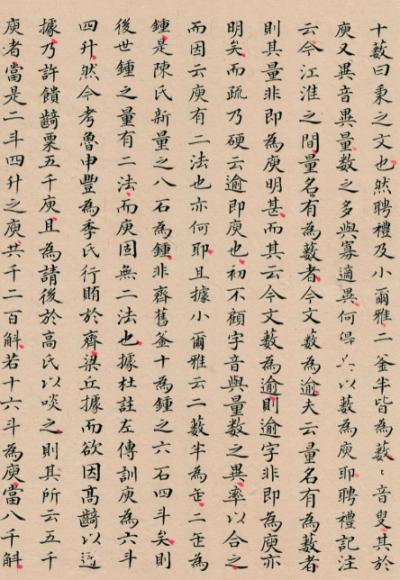 十藪曰秉之文也然聘禮及小爾雅二釜半皆為藪〻音叟其於
庾又異音異量數之多與寡適異何得以藪為庾耶聘禮記注
云今江淮之間量名有為藪者今文藪為逾夫云量名有為藪者
則其量非即為庾明甚而其云今文藪為逾則逾字非即為庾亦
明矣而疏乃硬云逾即庾也初不顧字音與量數之異率以合之
而因云庾有二法也亦何耶且據小爾雅云二藪半為缶二缶為
鍾是陳氏新量之八石為鍾非齊舊釜十為鍾之六石四斗矣則
後世鍾之量有二法而庾固無二法也據杜註左傳訓庾為六斗
四升然今考魯申豐為季氏行賂於齊梁丘據而欲因高齮以
據乃許饋齮粟五千庾且為請後於高氏以啖之則其所云五千
庾者當是二斗四升之庾共千二百斛若十六斗為庾當八千斛